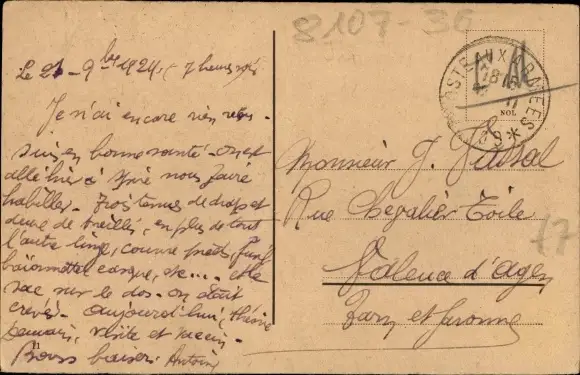 8107-36
Le 21-9bre 1924. (7 heures soir)
Je n'ai encore rien reçu.
suis en bonne santé. on est
allé hier à nous faire
habiller. Trois tenues de drap et
deux de treillis, en plus de tout
l'autre linge, couvre pieds, fusil
baïonnette casque, etc.... et le
sac sur le dos. on était
crevés. aujourd'hui, théorie
demain, visite et vaccin.
Bons baisers. Antoine
POSTE AUX ARMEES
18 15
11
NOL
89
Monsieur J.
Rue Chevalier Toile
Valence d'Agen
Tarn et Garonne
17